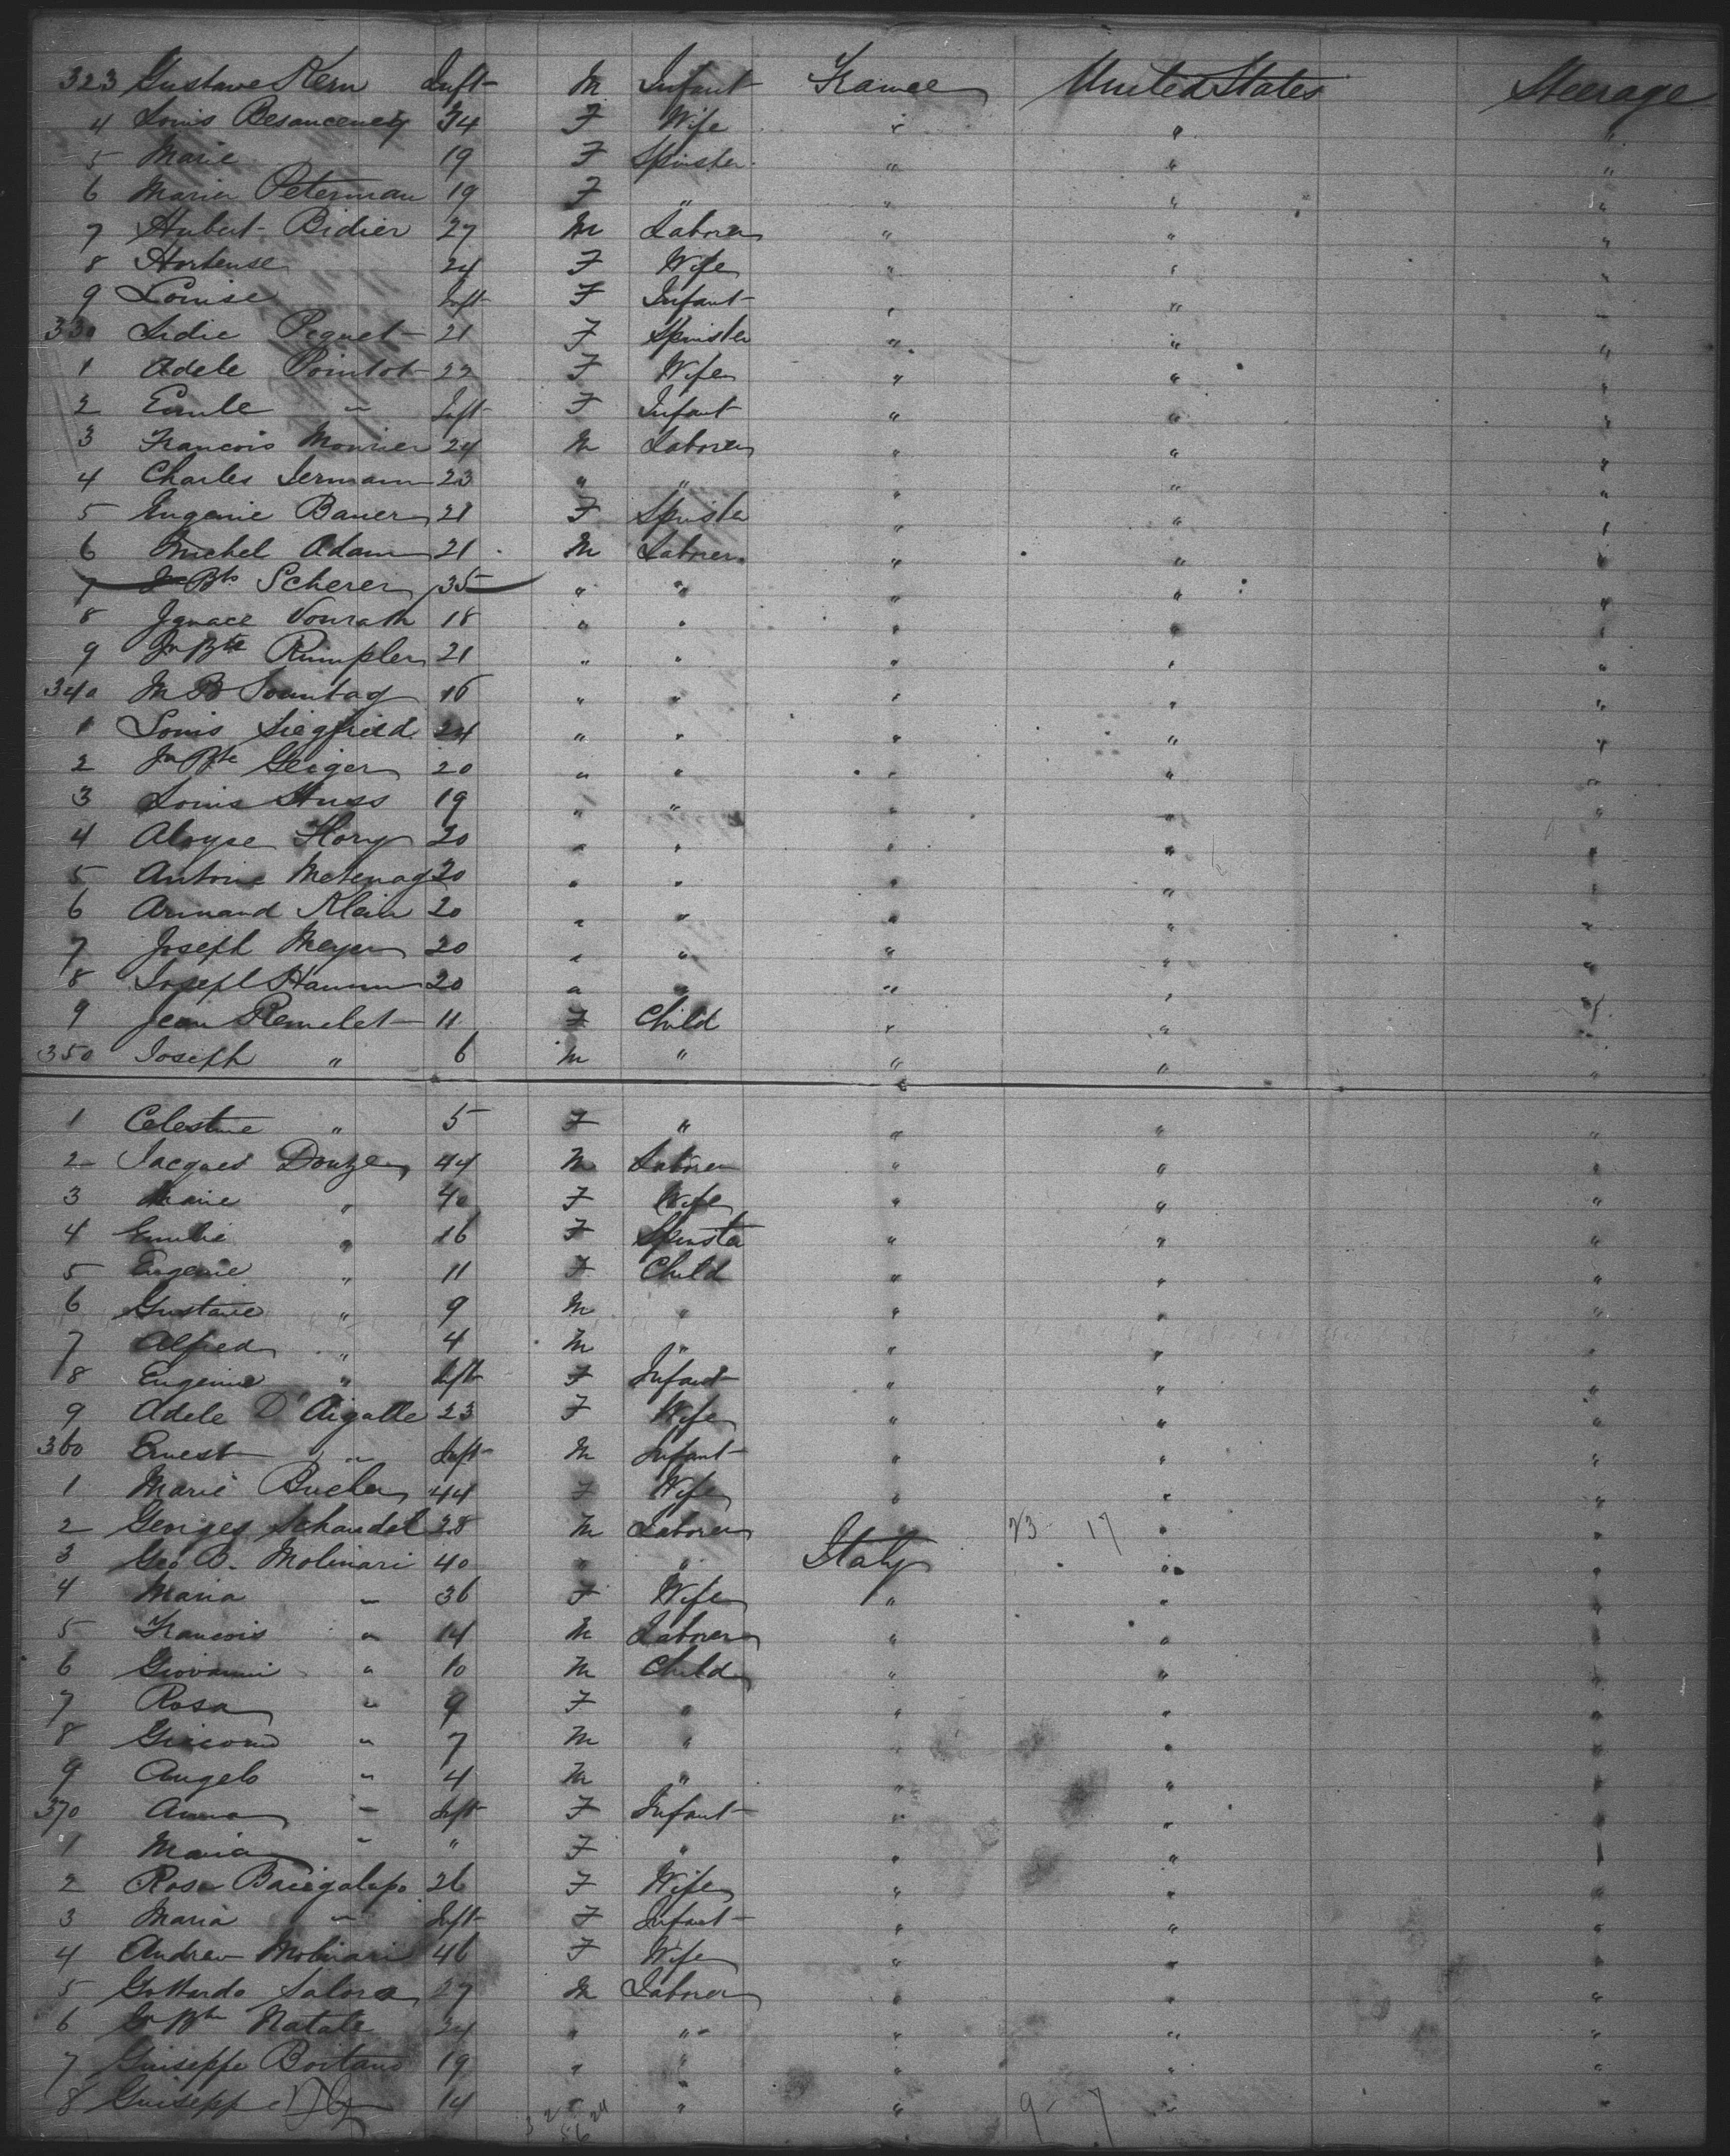 323 Gustave Kern Inft M Infant France United States Steerage
4 Louis Besanceney 34 F Wife " " "
5 Marie 19 F Spinster " " "
6 Maria Peterman 19 F " " " "
7 Hubert Bidier 27 M Laborer " " "
8 Hortense 24 F Wife " " "
9 Louise Inft F Infant " " "
330 Lidie Pequet 21 F Spinster " " "
1 Adele Pointot 22 F Wife " " "
2 Emile " Inft F Infant " " "
3 Francois Mounier 24 M Laborer " " "
4 Charles Lermann 23 " " " " "
5 Eugenie Bauer 21 F Spinster " " "
6 Michel Adam 21 M Laborer " " "
7 Jn Bte Scherer 35 " " " " "
8 Ignace Vonrath 18 " " " " "
9 Jn Bte Rumpler 21 " " " " "
340 M B Sonntag 16 " " " " "
1 Louis Siegfried 24 " " " " "
2 Jn Bte Geiger 20 " " " " "
3 Louis Huss 19 " " " " "
4 Aloyse Hory 20 " " " " "
5 Antoine 20 " " " " "
6 Armand Klein 20 " " " " "
7 Joseph Meyer 20 " " " " "
8 Joseph Hamm 20 " " " " "
9 Jean Remelet 11 F Child " " "
350 Joseph " 6 M " " " "
1 Celestine " 5 F " " " "
2 Jacques Douzer 44 M Laborer " " "
3 Marie " 40 F Wife " " "
4 Emilie " 16 F Spinster " " "
5 Eugenie " 11 F Child " " "
6 Gustave " 9 M " " " "
7 Alfred " 4 M " " " "
8 Eugenie " Inft F Infant " " "
9 Adele D'Aigalle 23 F Wife " " "
360 Ernest " Inft M Infant " " "
1 Marie Bucher 44 F Wife " " "
2 Georges Schaudel 28 M Laborer 23 - 17 " "
3 Geo B. Molinari 40 " " Italy " "
4 Maria " 36 F Wife " " "
5 Francois " 14 M Laborer " " "
6 Giovanni " 10 M Child " " "
7 Rosa " 9 F " " " "
8 Giacomo " 7 M " " " "
9 Angelo " 4 M " " " "
370 Anna " Inft F Infant " " "
1 Maria " " F " " " "
2 Rosa Bacigalupo 26 F Wife " " "
3 Maria " Inft F Infant " " "
4 Andrew Molinari 46 F Wife " " "
5 Gottardo Salora 27 M Laborer " " "
6 Gn Bte Natale 24 " " " " "
7 Guiseppe Boitano 19 " " " " "
8 Guiseppe 14 " " " 9 - 7 "